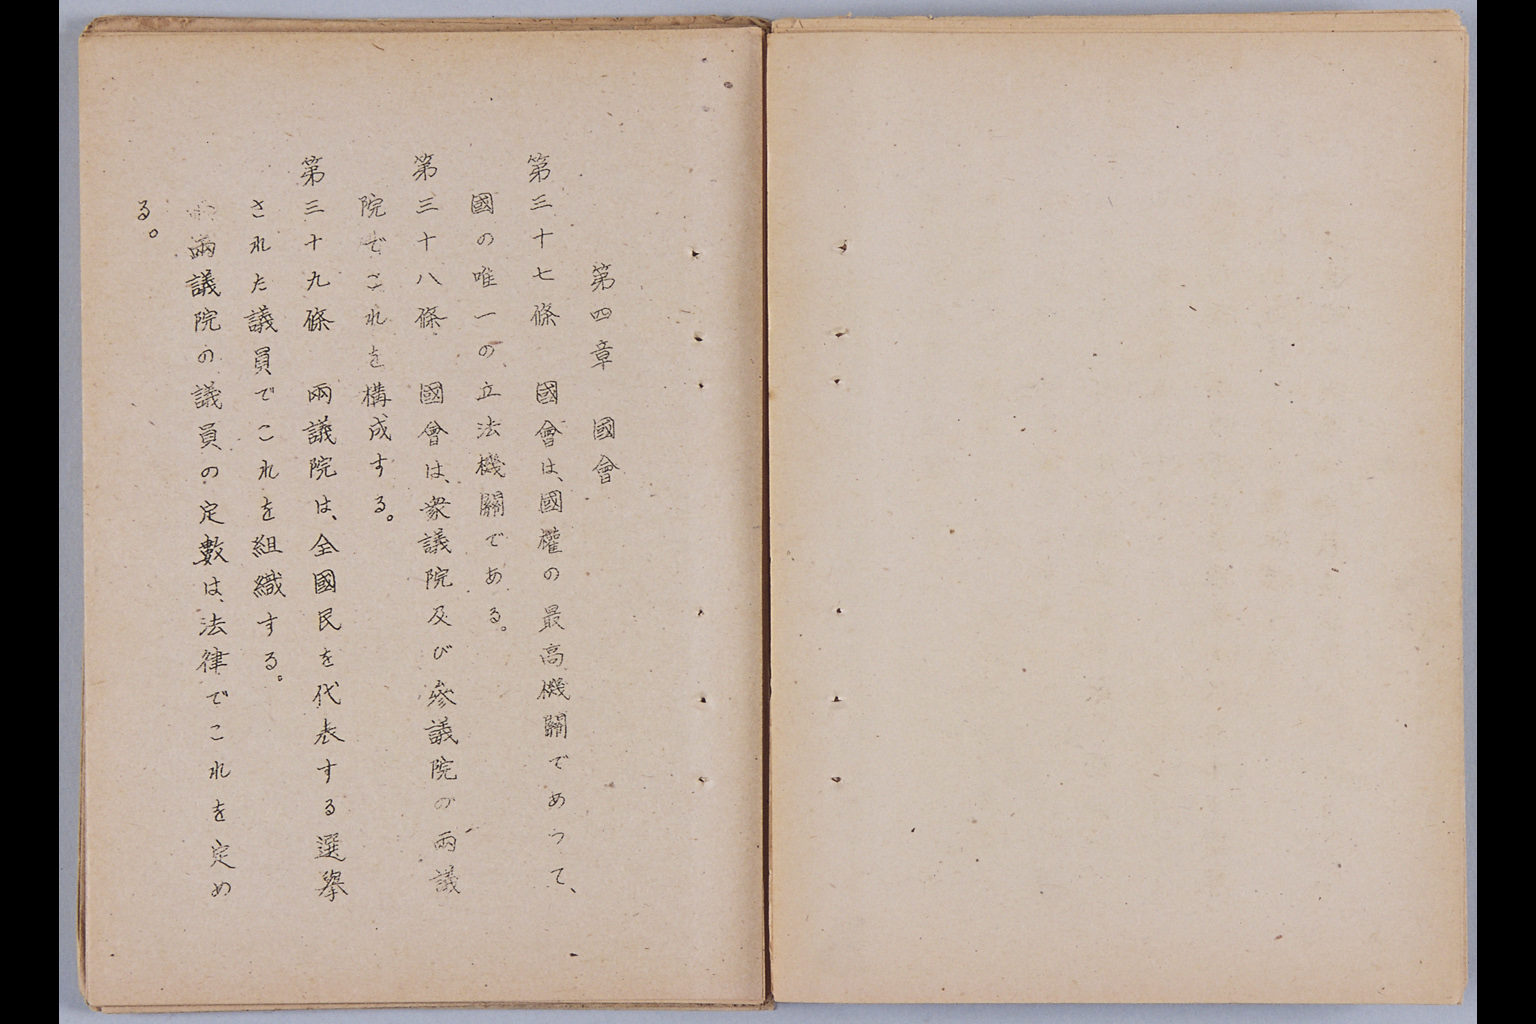 第四章　國會
第三十七條　國會は、國權の最高機關であつて、
國の唯一の立法機關である。
第三十八條　國會は、衆議院及び參議院の兩議
院でこれを構成する。
第三十九條　兩議院は、全國民を代表する選擧
された議員でこれを組織する。
兩議院の議員の定數は、法律でこれを定め
る。